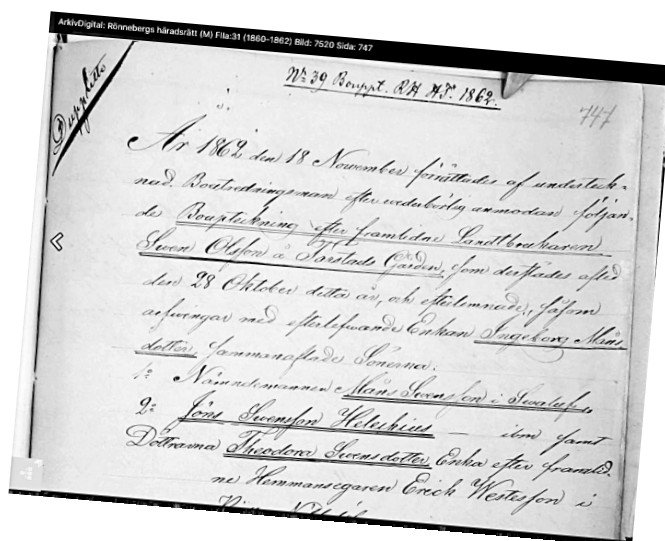 ArkivDigital: Rönnebergs häradsrätt (M) FIIa:31 (1860-1862) Bild: 7520 Sida: 747
No 39 Bouppt. RH HT. 1862.
747
År 1862 den 18 November förrättades af underteck-
nad Boutredningsman efter vederbörlig anmodan följan-
de Bouptekning efter framlidne Landtbrukaren
Swen Olsson å Torstads Gården, som derstädes afled
den 28 Oktober detta år, och efterlemnade, såsom
arfwingar med efterlefwande Enkan Ingeborg Måns
dotter, sammanaflade Sönerna.
1o Nämndemannen Måns Swensson i
2o Jöns Swensson Heleskius — ibm samt
Döttrarna Theodora Swensdotter, Enka efter framlid.
ne Hemmansegaren Erick Westesson i